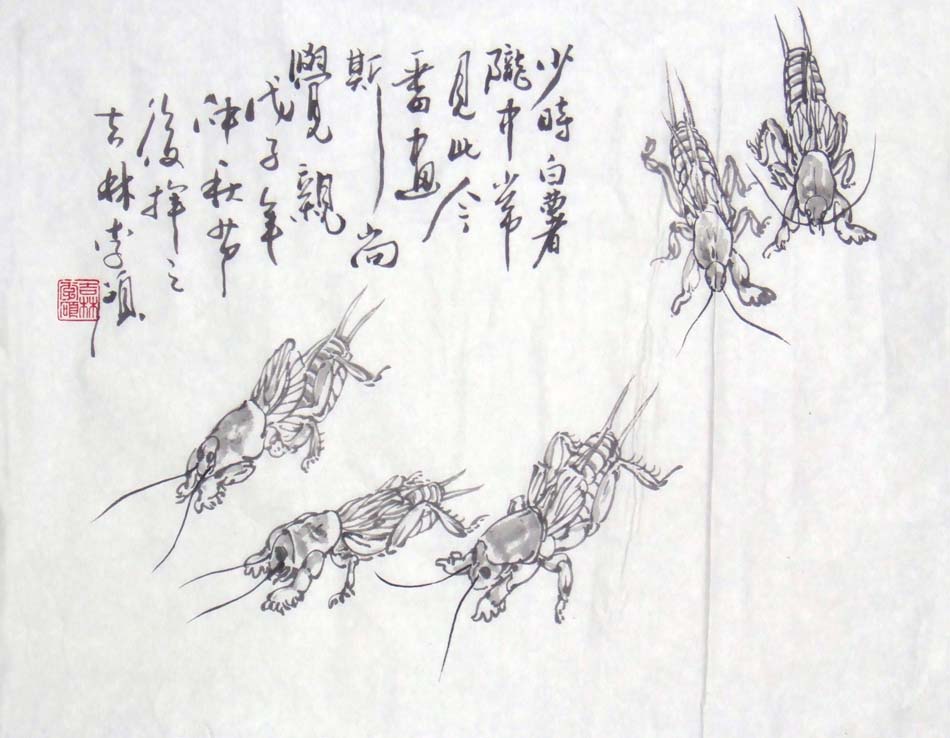 少時白薯
隴中常
見此今
番畫
斯尚
覺親
戊子年
仲秋節
後揮之
吉林李頌
吉林李頌